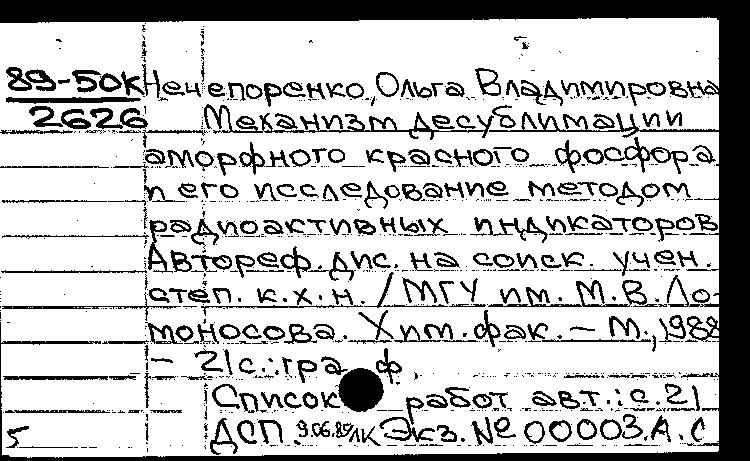 89-50К Нечепоренко, Ольга Владимировна
2626 Механизм десублимации
аморфного красного фосфора
и его исследование методом
радиоактивных индикаторов
Автореф. дис. на соиск. учен.
степ. к.х.н. / МГУ им. М.В. Ло-
моносова. Хим. фак. – М., 1988
– 21 с.: граф.
Список работ авт.: с. 21
5 ДСП. 9.06.89 Экз. № 00003. А. С